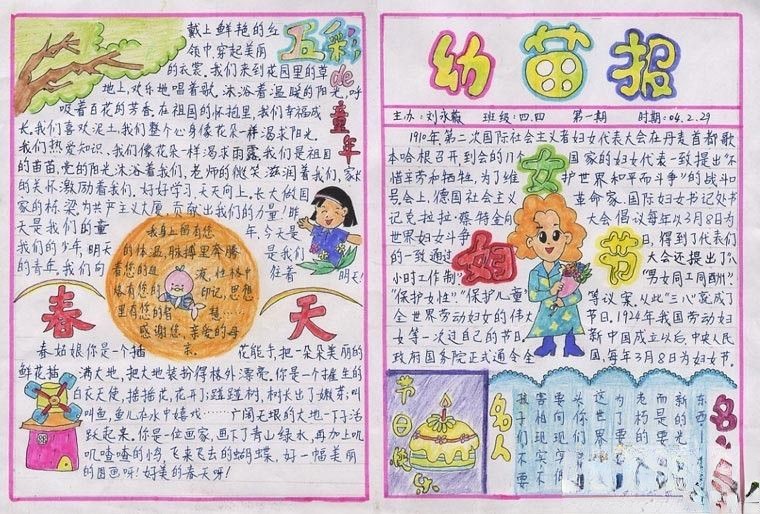 五彩
de
童年
戴上鲜艳的红
领巾,穿起美丽
的衣裳。我们来到花园里的草
地上,欢乐地唱着歌,沐浴着温暖的阳光,呼
吸着百花的芳香。在祖国的怀抱里,我们幸福成
长。我们喜欢泥土,我们整个心身像花朵一样渴求阳光。
我们热爱知识、我们像花朵一样渴求雨露。我们是祖国
的苗苗,党的阳光沐浴着我们,老师的微笑滋润着我们,家长
的关怀激励着我们,好好学习,天天向上。长大做国
家的栋梁。为共产主义大厦,贡献出我们的力量!昨
天是我们的童年,今天是
我们的少年,明天是我们
的青年。我们向往着明天!
我身上留有您
的体温,脉搏里奔腾
着您的血液,性格中
烙有您的印记,思想
里有您的智慧…
感谢您,亲爱的母
亲。
春天
春姑娘你是一个插花能手,把一朵朵美丽的
鲜花插满大地,把大地装扮得格外漂亮。你是一个催生的
白衣天使,摇摇花,花开了;碰碰树,树长出了嫩芽;叫
叫鱼,鱼儿在水中嬉戏……广阔无垠的大地一下子活
跃起来。你是一位画家,画下了青山绿水,再加上叽
叽喳喳的小鸟,飞来飞去的蝴蝶,好一幅美丽
的图画呀!好美的春天呀!
幼苗报
主办:刘永薇 班级:四.四 第一期 时期:04.2.29
妇女节
1910年,第二次国际社会主义者妇女代表大会在丹麦首都歌
本哈根召开,到会的17个国家的妇女代表一致提出"不
惜辛劳和牺牲,为了维护世界和平而斗争"的战斗口
号会上,德国社会主义革命家、国际妇女书记处书
记克拉拉·蔡特金向大会倡议每年以3月8日为
世界妇女斗争日,得到了代表们
的一致通过大会还提出了八
小时工作制?"男女同工同酬"、
"保护女性"、"保护儿童"等议案,从此"三八"就成了
全世界劳动妇女的伟大节日。1924年我国劳动妇
女第一次过自己的节日新中国成立以后,中央人民
政府国务院正式通令全国,每年3月8日为妇女节。
节日快乐
名人名
东西!
新的
而是光
老的
朽是
为了要
这世界
你们
要向
害相
孩子们,不要